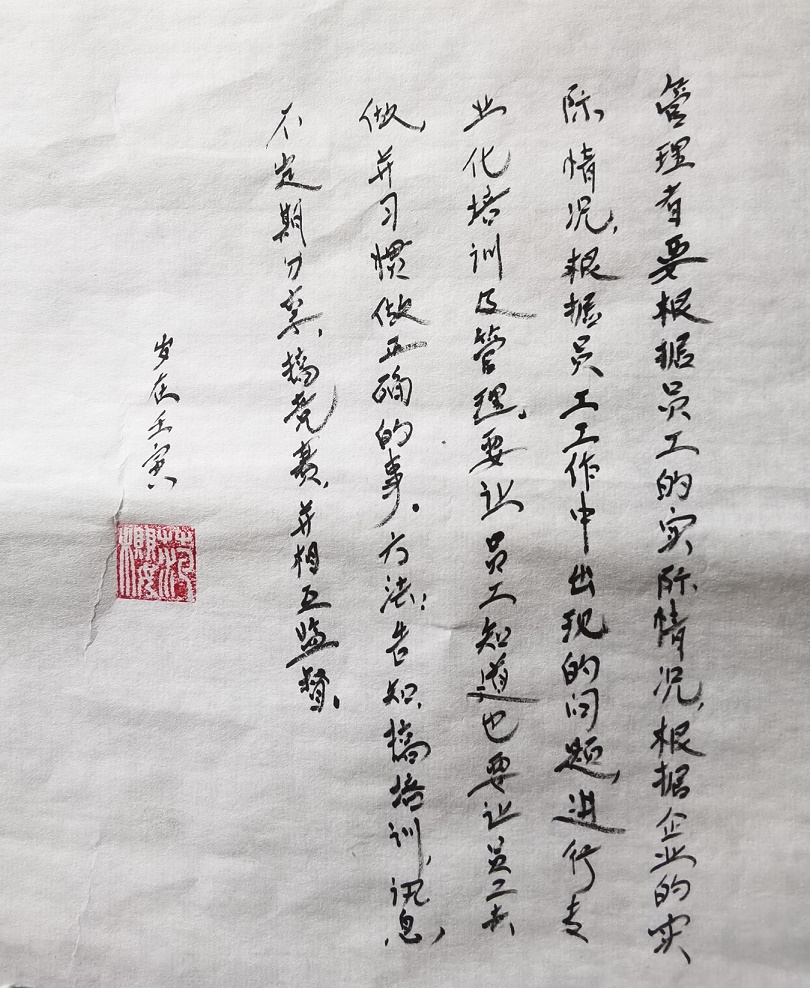 管理者要根据员工的实际情况，根据企业的实
际情况，根据员工工作中出现的问题，进行专
业化培训及管理。要让员工知道也要让员工去
做，并习惯做正确的事。方法：告知，搞培训，讯息，
不定期分享，搞竞赛，并相互监督。
岁在壬寅